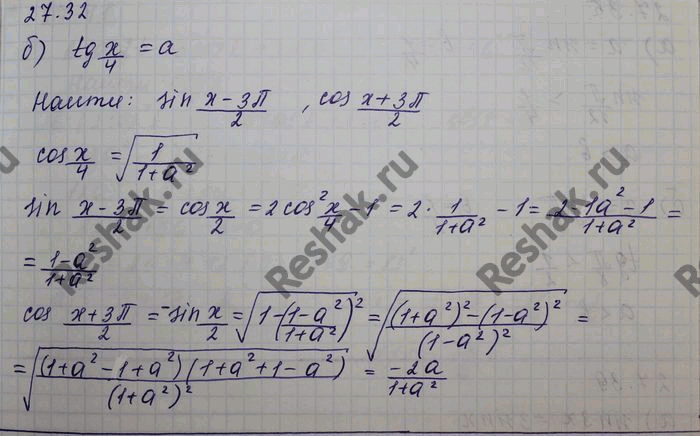 27.32
б) tg x/4 = a
Найти: sin (x-3π)/2 , cos (x+3π)/2
cos x/4 = √(1/(1+a²))
sin (x-3π)/2 = cos x/2 = 2cos² x/4 - 1 = 2 · 1/(1+a²) - 1 = (2-1a²-1)/(1+a²) =
= (1-a²)/(1+a²)
cos (x+3π)/2 = -sin x/2 = √(1-((1-a²)/(1+a²))²) = √(((1+a²)²-(1-a²)²)/(1-a²)²) =
= √((1+a²-1+a²)(1+a²+1-a²)/(1+a²)²) = -2a/(1+a²)
Reshak.ru
Reshak.ru
Reshak.ru